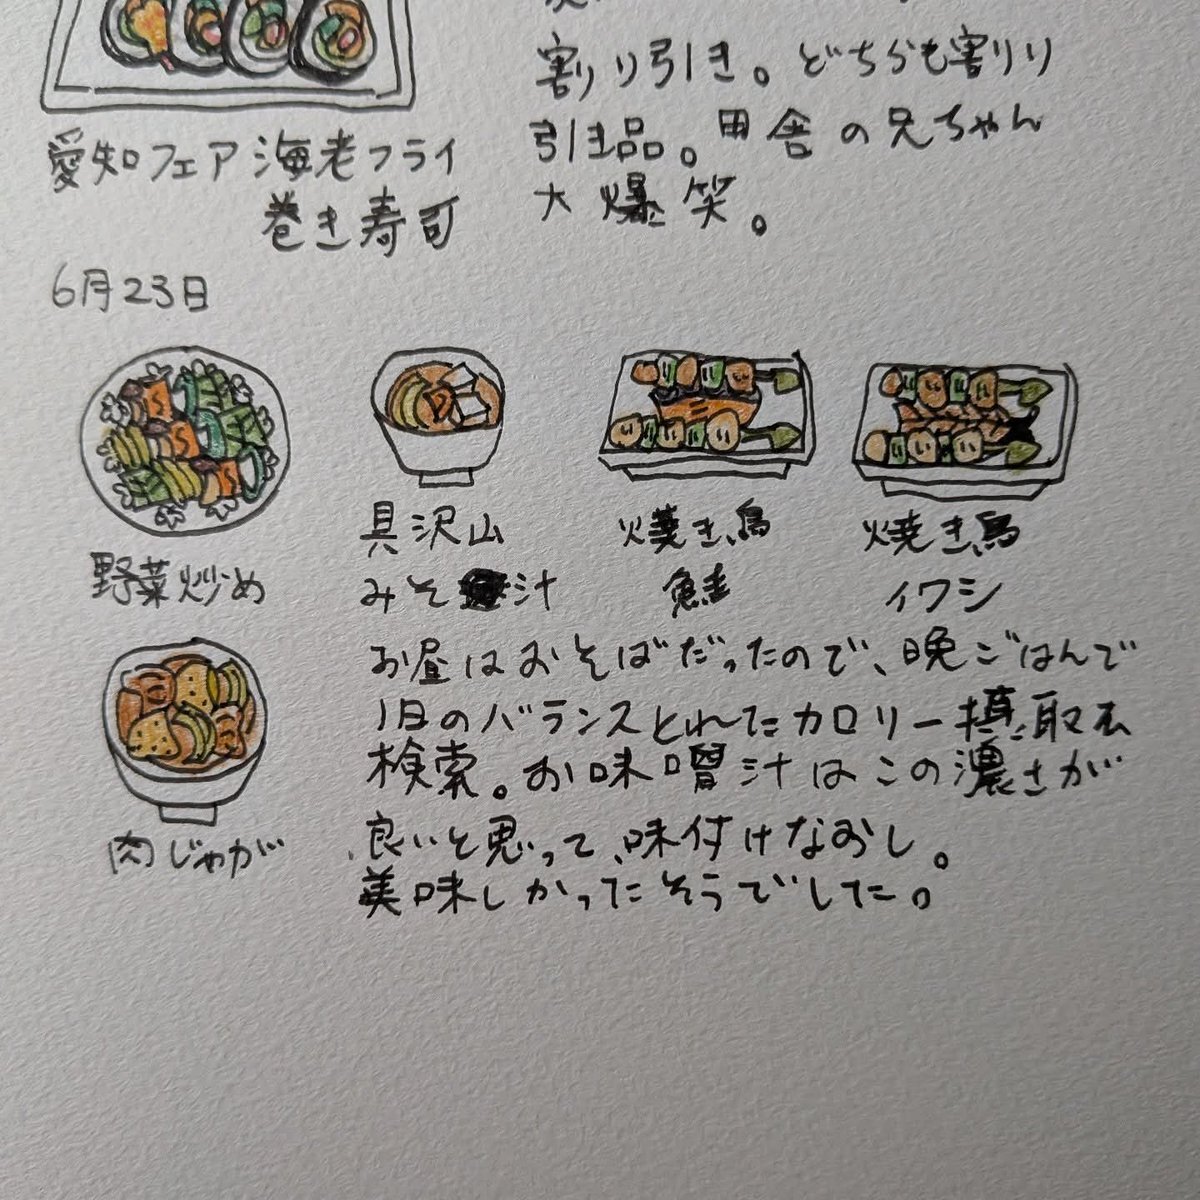 割り引き。どちらも割りり
引き品。田舎の兄ちゃん
大爆笑。
愛知フェア海老フライ
巻き寿司
6月23日
野菜炒め
具沢山
みそ汁
焼き鳥
鮭
焼き鳥
イワシ
肉じゃが
お昼はおそばだったので、晩ごはんで
1日のバランスとれたカロリー摂取を
検索。お味噌汁はこの濃さが
良いと思って、味付けなおし。
美味しかったそうでした。